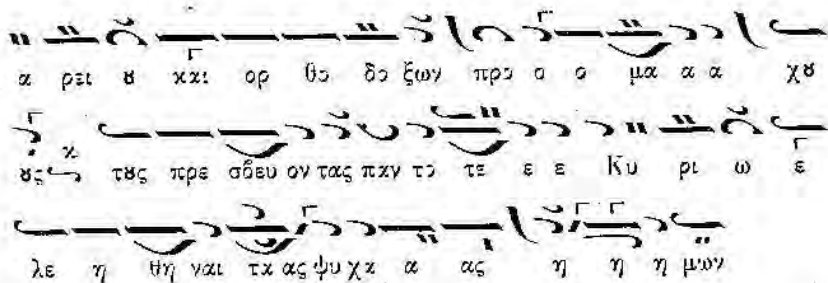 α ρει ȣ και ορ θο δο ξων προ ο ο μα α α χȣ
ȣς τȣς πρε σβευ ον τας παν το τε ε ε Κυ ρι ω ε
λε η θη ναι τα ας ψυ χα α ας η η η μων